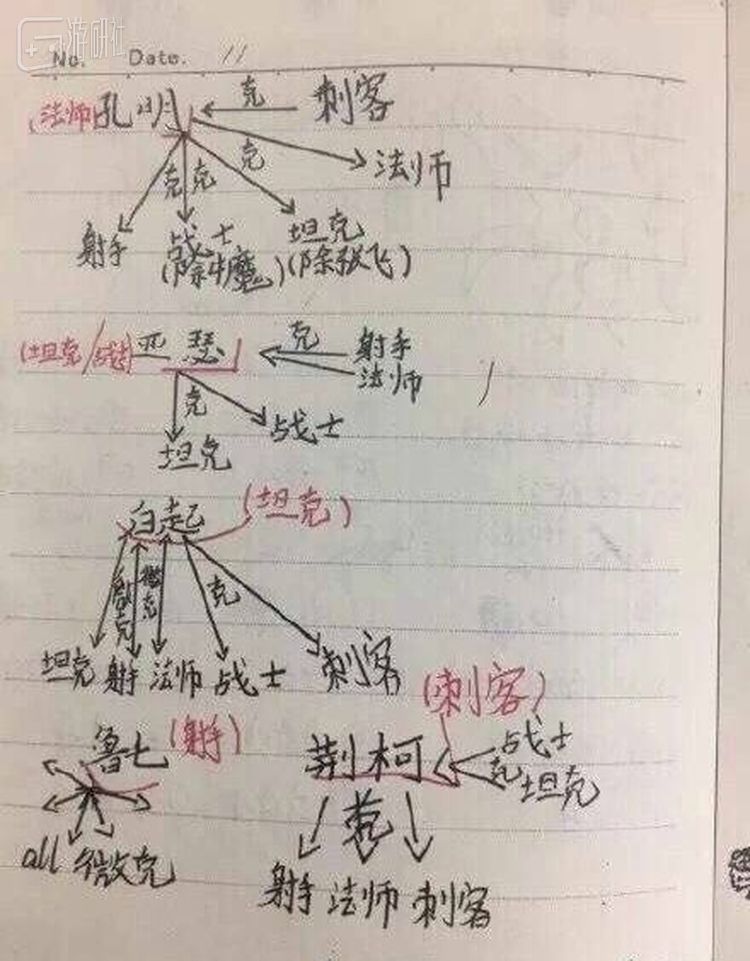 游研社
No. Date. 11
(法师)孔明 克 刺客
克 克 克 法师
射手 战士 坦克
(除牛魔) (除张飞)
(坦克/战士) 亚瑟 克 射手
法师
克 战士
坦克
白起 (坦克)
微克 微克 克
坦克 射手 法师 战士 刺客
鲁七 (射手)
all 微克
(刺客)
荆柯 克 战士
坦克
克
射手 法师 刺客